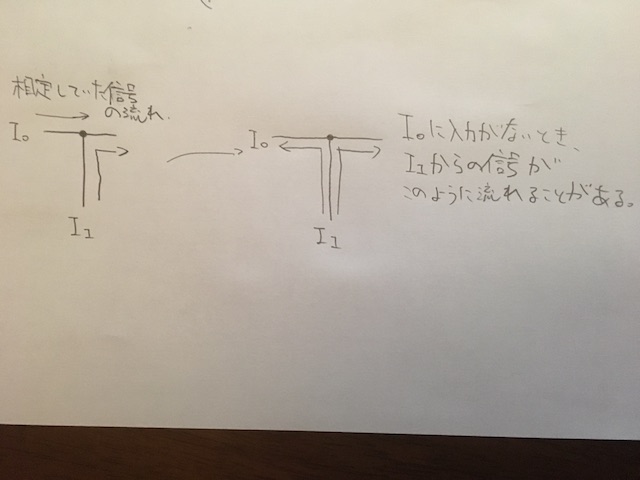 相定していた信号
の流れ.
I₀
I₁
I₀
I₁
I₀に入力がないとき、
I₁からの信号が
このように流れることがある。